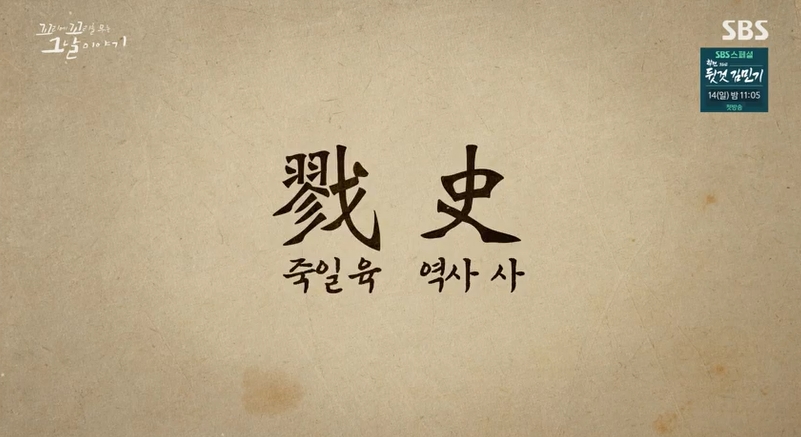 꼬리에 꼬리를 무는
그날 이야기
SBS
SBS 스페셜
학전 그리고
뒷것 김민기
14(일) 밤 11:05
첫방송
戮 史
죽일 육 역사 사